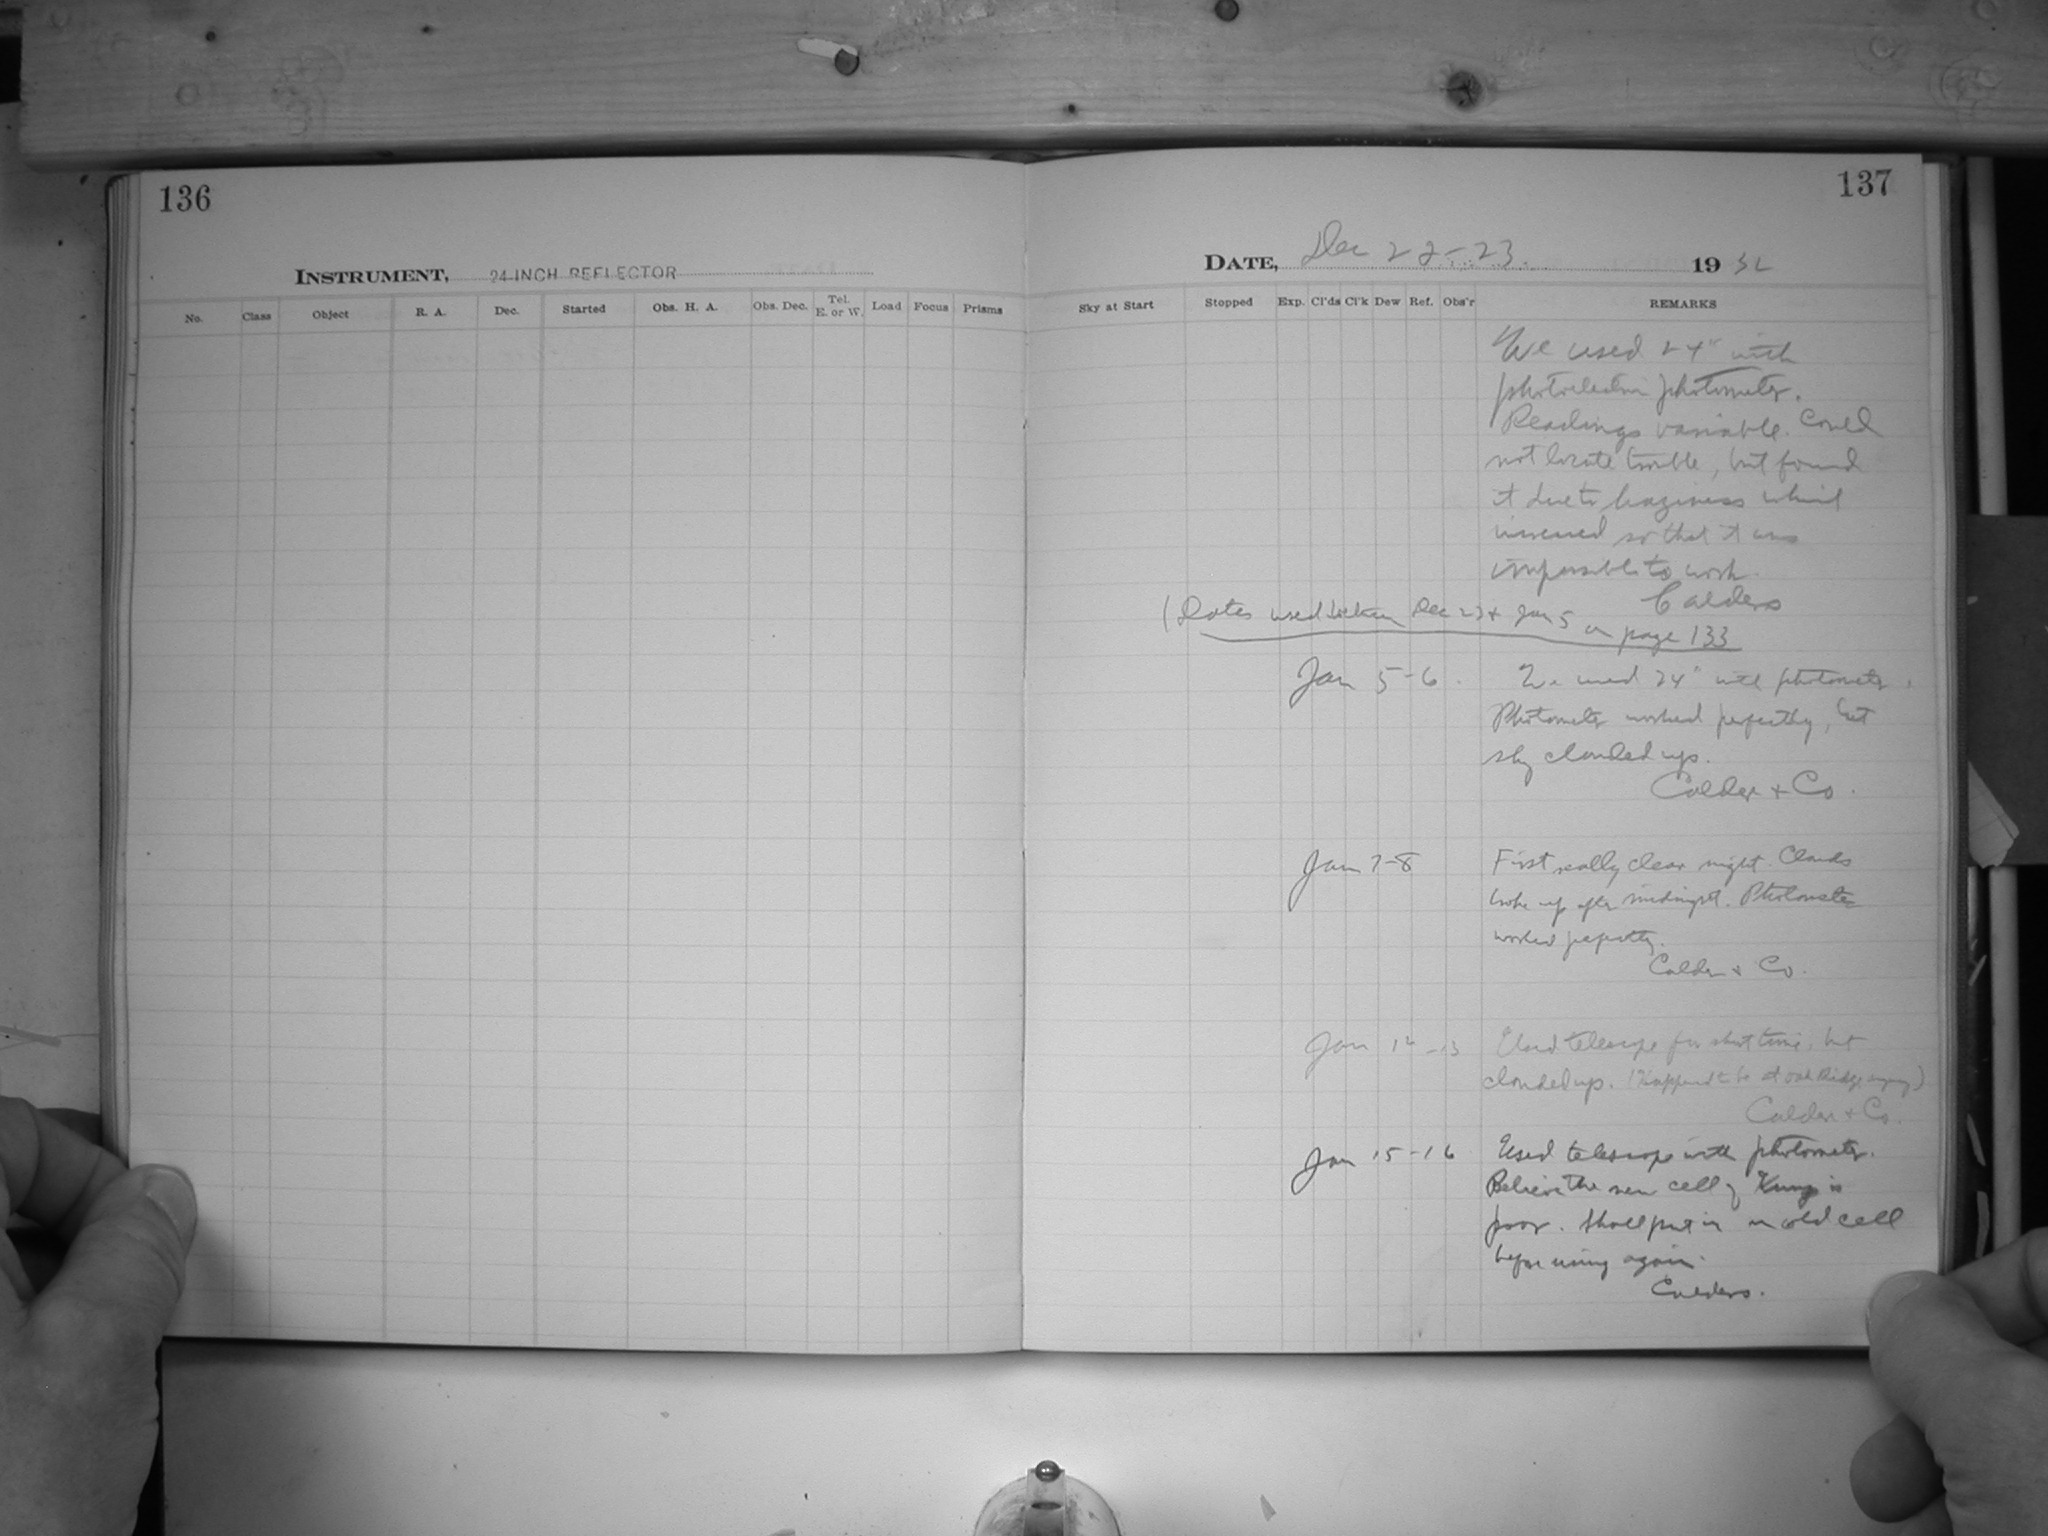 136
INSTRUMENT, 24 INCH REFLECTOR
No. Class Object R. A. Dec. Started Obs. H. A. Obs. Dec. Tel. E. or W. Load Focus Prisms
137
DATE, Dec 22-23. 1932
Sky at Start Stopped Exp. Cl'ds Cl'k Dew Ref. Obs'r REMARKS
We used 24" with
photoelectric photometer.
Readings variable. Could
not locate trouble, but found
it due to haziness which
increased so that it was
impossible to work.
Calders
(Dates used between Dec 23 + Jan 5 on page 133
Jan 5-6. We used 24" with photometer.
Photometer worked perfectly, but
sky clouded up.
Calder + Co.
Jan 7-8 First really clear night. Clouds
broke up after midnight. Photometer
worked perfectly.
Calder + Co.
Jan 12-13 Used telescope for short time, but
clouded up. (Happened to be at Oak Ridge
Calder + Co.
Jan 15-16 Used telescope with photometer.
Believe the new cell of is
poor. Shall put in old cell
before using again.
Calders.